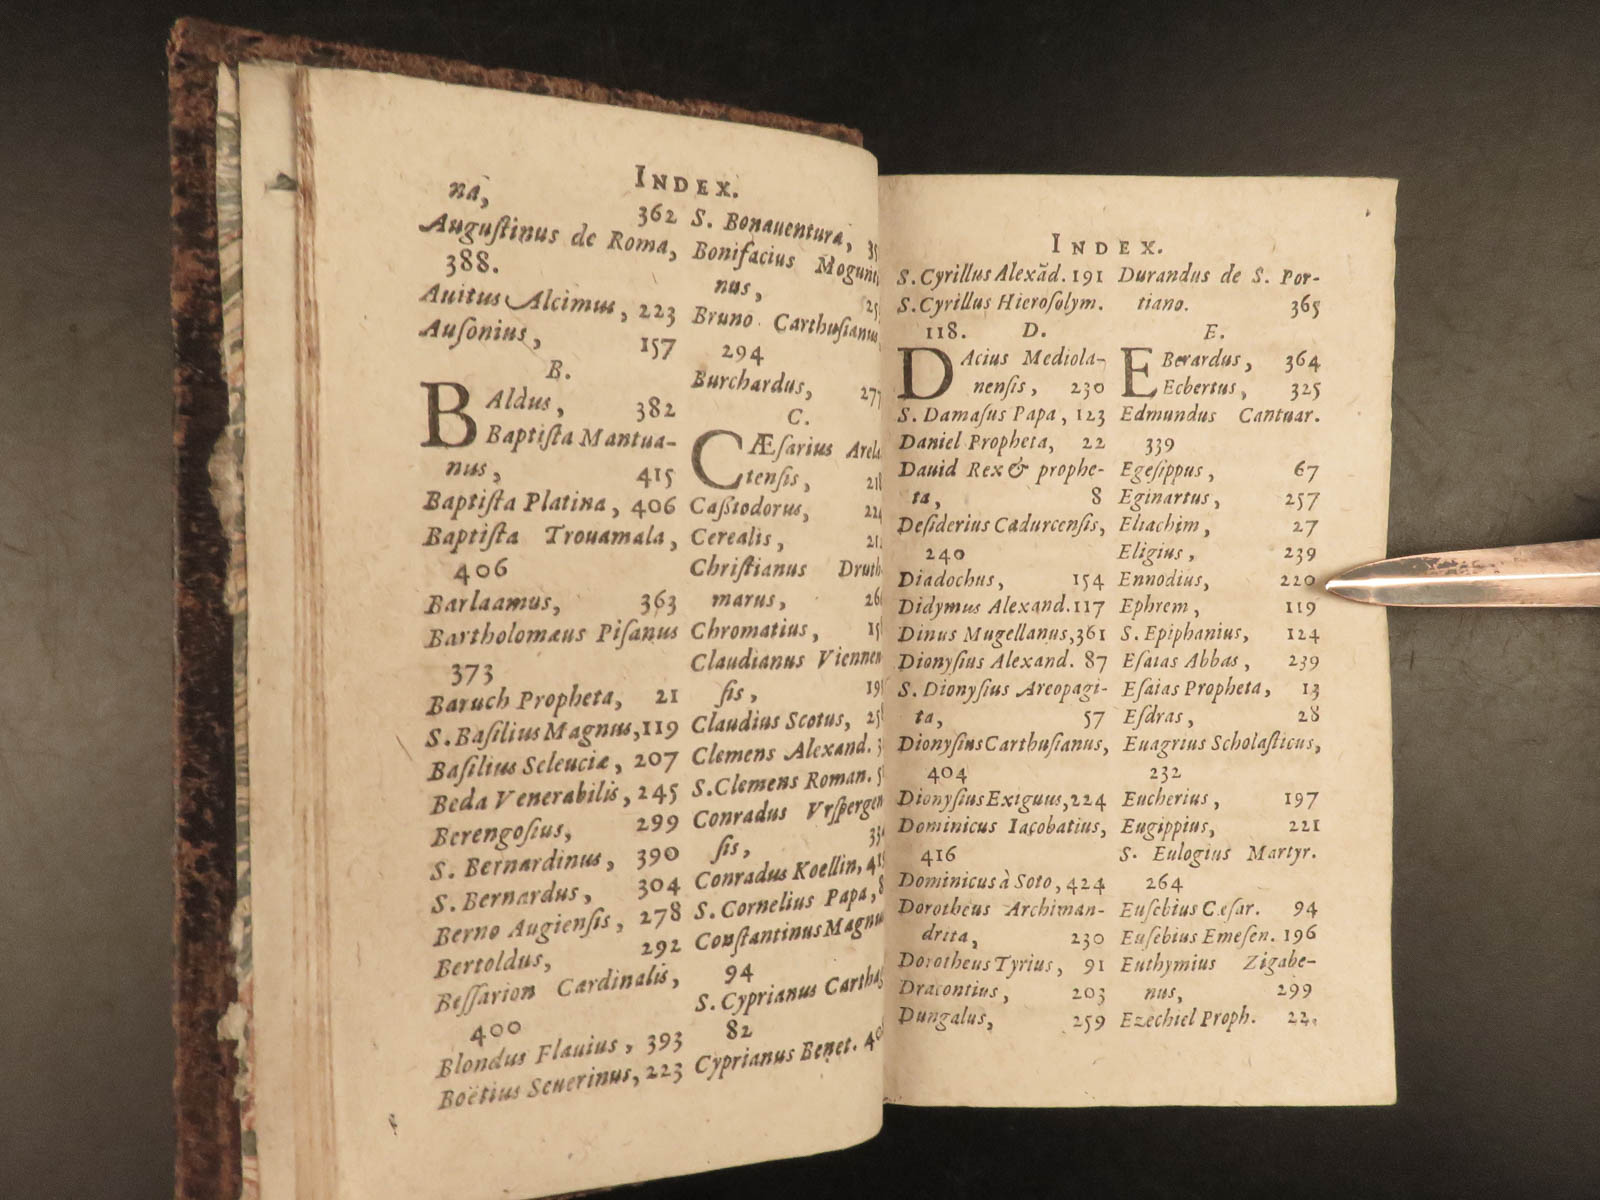 INDEX.
na, 362
Auguſtinus de Roma,
388.
Auitus Alcimus, 223
Auſonius, 157
B.
BAldus, 382
Baptiſta Mantua-
nus, 415
Baptiſta Platina, 406
Baptiſta Trouamala,
406
Barlaamus, 363
Bartholomæus Piſanus
373
Baruch Propheta, 21
S. Baſilius Magnus, 119
Baſilius Seleuciæ, 207
Beda Venerabilis, 245
Berengoſius, 299
S. Bernardinus, 390
S. Bernardus, 304
Berno Augienſis, 278
Bertoldus, 292
Beſſarion Cardinalis,
400
Blondus Flauius, 393
Boëtius Seuerinus, 223
S. Bonauentura,
Bonifacius
nus,
Bruno Carthuſianus,
294
Burchardus, 277
C.
CÆſarius
tenſis,
Caſsiodorus,
Cerealis,
Chriſtianus
marus,
Chromatius,
Claudianus
ſis,
Claudius Scotus,
Clemens Alexand.
S. Clemens Roman.
Conradus
ſis,
Conradus Koellin,
S. Cornelius Papa,
Conſtantinus
94
S. Cyprianus
82
Cyprianus Benet.
INDEX.
S. Cyrillus Alexãd. 191
S. Cyrillus Hieroſolym.
118. D.
DAcius Mediola-
nenſis, 230
S. Damaſus Papa, 123
Daniel Propheta, 22
Dauid Rex & prophe-
ta, 8
Deſiderius Cadurcenſis,
240
Diadochus, 154
Didymus Alexand. 117
Dinus Mugellanus, 361
Dionyſius Alexand. 87
S. Dionyſius Areopagi-
ta, 57
Dionyſius Carthuſianus,
404
Dionyſius Exiguus, 224
Dominicus Iacobatius,
416
Dominicus à Soto, 424
Dorotheus Archiman-
drita, 230
Dorotheus Tyrius, 91
Dracontius, 203
Dungalus, 259
Durandus de S. Por-
tiano. 365
E.
EBerardus, 364
Ecbertus, 325
Edmundus Cantuar.
339
Egeſippus, 67
Eginartus, 257
Eliachim, 27
Eligius, 239
Ennodius, 220
Ephrem, 119
S. Epiphanius, 124
Eſaias Abbas, 239
Eſaias Propheta, 13
Eſdras, 28
Euagrius Scholaſticus,
232
Eucherius, 197
Eugippius, 221
S. Eulogius Martyr.
264
Euſebius Cæſar. 94
Euſebius Emeſen. 196
Euthymius Zigabe-
nus, 299
Ezechiel Proph. 22.